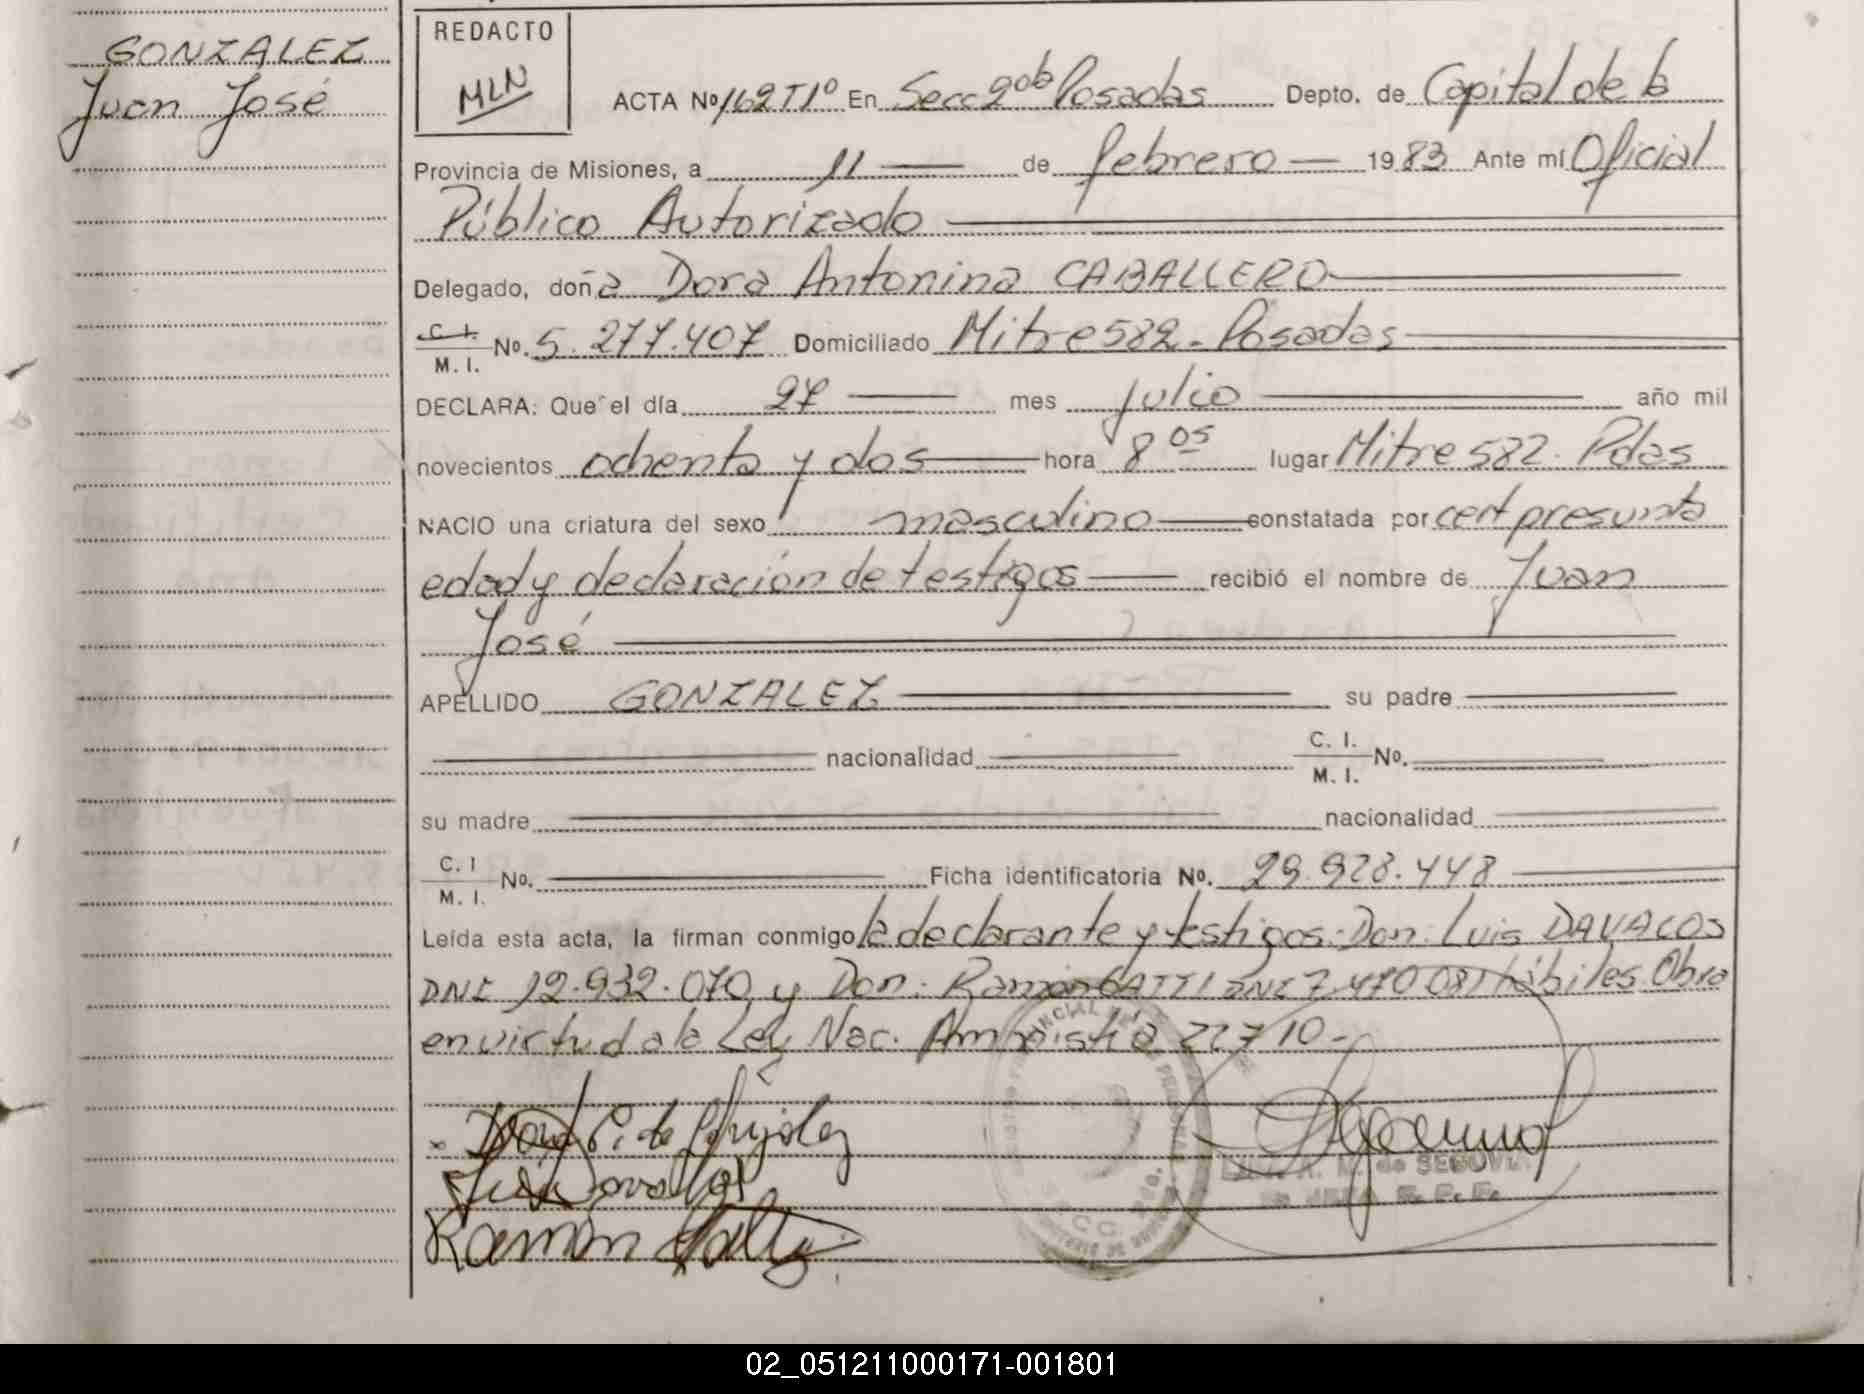 GONZALEZ
Juan José
REDACTO
MLN
ACTA Nº 162 T1º En Secc 2da Posadas Depto. de Capital de la
Provincia de Misiones, a 11 de febrero 1983 Ante mí Oficial
Público Autorizado
Delegado, doña Dora Antonina CABALLERO
C. I.
M. I. No. 5.277.407 Domiciliado Mitre 582 - Posadas
DECLARA: Que el día 27 mes julio año mil
novecientos ochenta y dos hora 8 05 lugar Mitre 582. Pdas
NACIO una criatura del sexo masculino constatada por cert presunta
edad y declaración de testigos recibió el nombre de Juan
José
APELLIDO GONZALEZ su padre
nacionalidad C. I.
M. I. No.
su madre nacionalidad
C. I
M. I. No. Ficha identificatoria No. 29.928.448
Leída esta acta, la firman conmigo la declarante y testigos: Don: Luis DAVALOS
DNI 12.932.070 y Don: Ramón GATTI DNI 7.470.081 hábiles. Obra
en virtud a la Ley Nac. Amnistía 22710-
Ramón Gatti
de SEGOVIA
SECC. 2da.
02_051211000171-001801